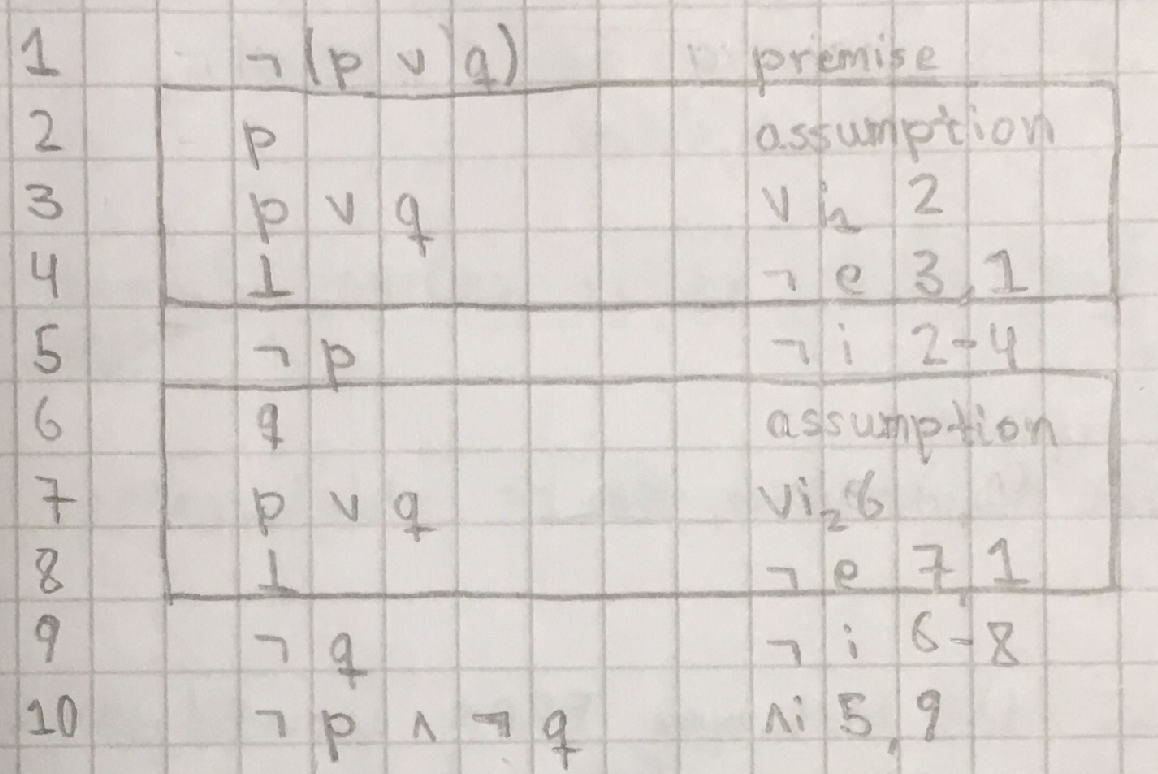 1 ¬(p ∨ q) premise
2 p assumption
3 p ∨ q ∨i₁ 2
4 ⊥ ¬e 3,1
5 ¬p ¬i 2-4
6 q assumption
7 p ∨ q ∨i₂ 6
8 ⊥ ¬e 7,1
9 ¬q ¬i 6-8
10 ¬p ∧ ¬q ∧i 5,9